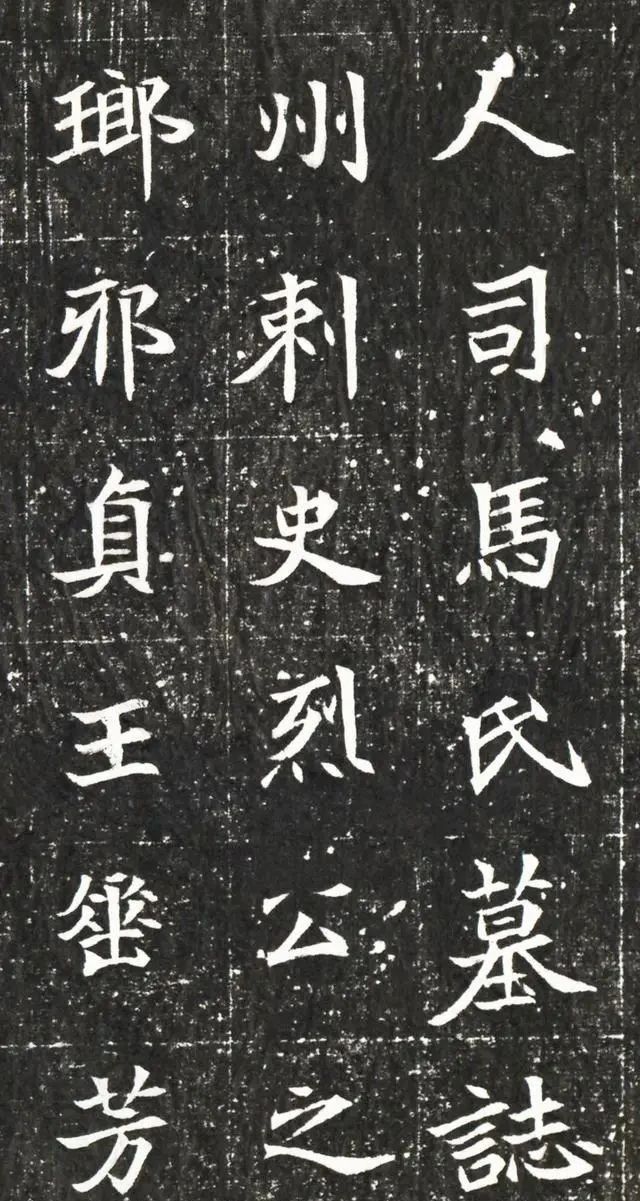 人司馬氏墓誌
州刺史烈公之
瑯邪貞王垂芳